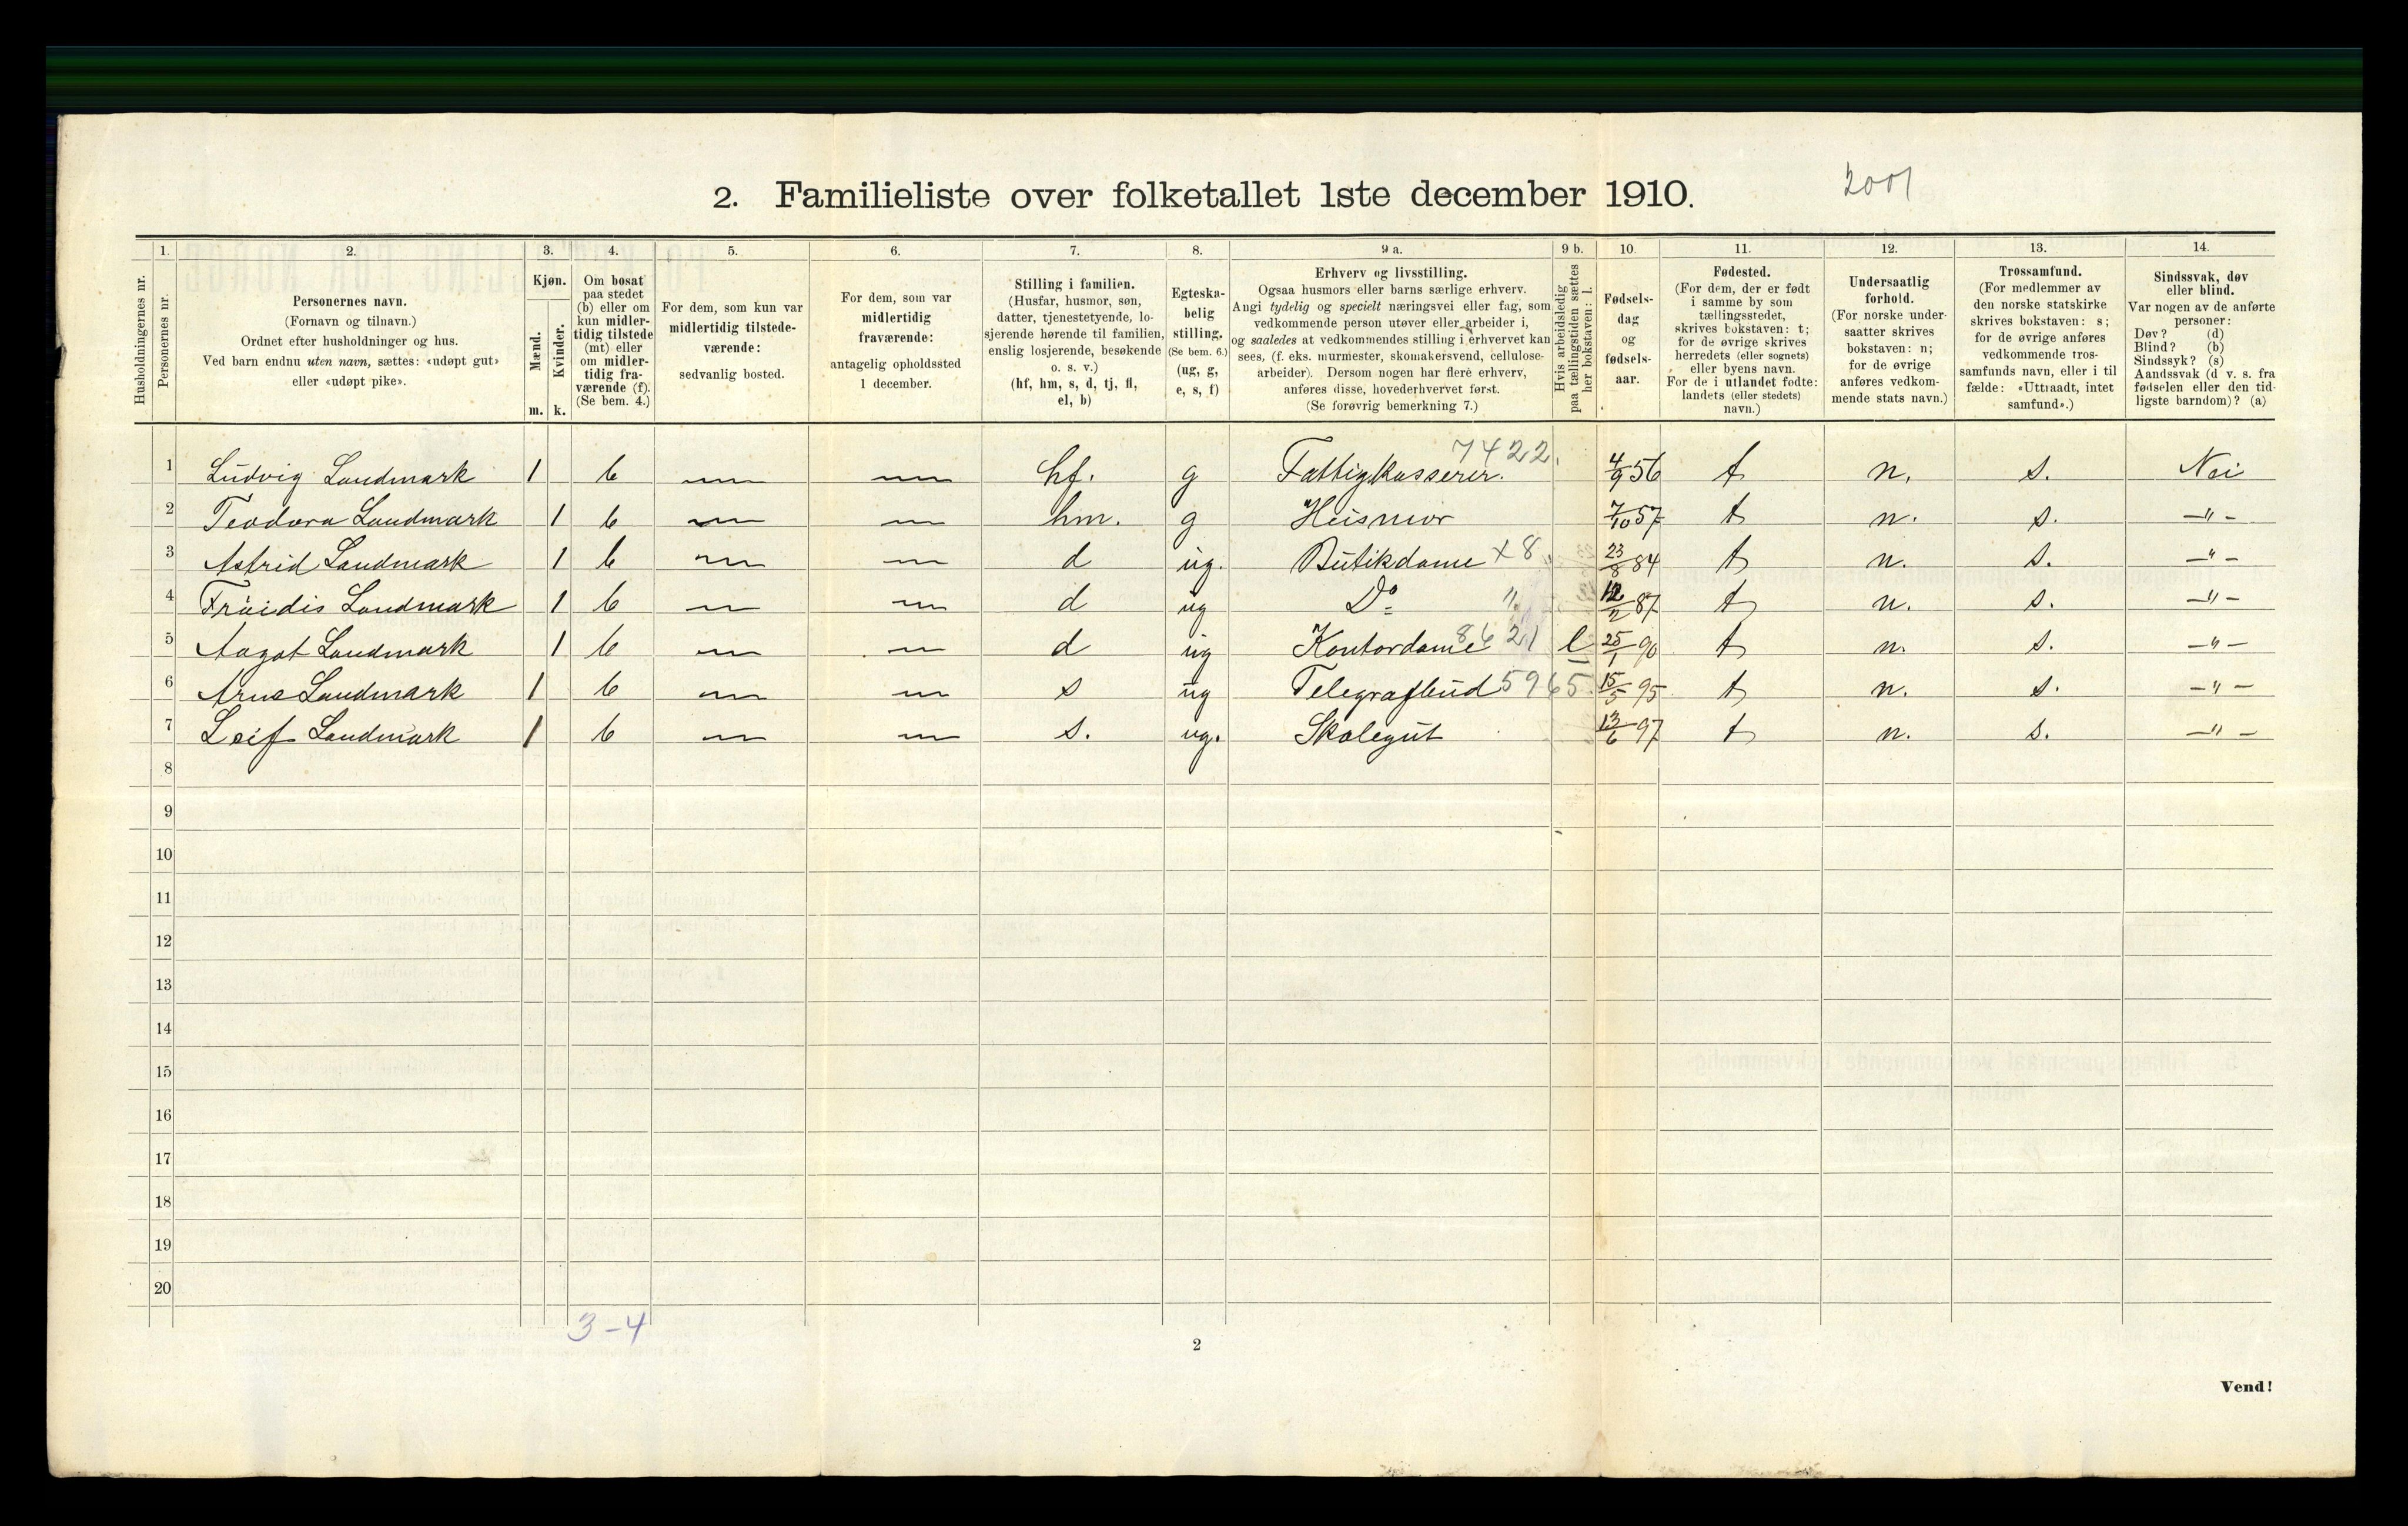 2. Familieliste over folketallet 1ste december 1910.
2001
Husholdningernes nr.
1. 2. 3. 4. 5. 6. 7. 8. 9 a. 9 b. 10. 11. 12. 13. 14.
Personernes nr.
Personernes navn.
(Fornavn og tilnavn.)
Ordnet efter husholdninger og hus.
Ved barn endnu uten navn, sættes: «udøpt gut»
eller «udøpt pike».
Kjøn.
Mænd.
Kvinder.
m. k.
Om bosat
paa stedet
(b) eller om
kun midler-
tidig tilstede
(mt) eller
om midler-
tidig fra-
værende (f).
(Se bem. 4.)
For dem, som kun var
midlertidig tilstede-
værende:
sedvanlig bosted.
For dem, som var
midlertidig
fraværende:
antagelig opholdssted
1 december.
Stilling i familien.
(Husfar, husmor, søn,
datter, tjenestetyende, lo-
sjerende hørende til familien,
enslig losjerende, besøkende
o. s. v.)
(hf, hm, s, d, tj, fl,
el, b)
Egteska-
belig
stilling.
(Se bem. 6.)
(ug, g,
e, s, f)
Erhverv og livsstilling.
Ogsaa husmors eller barns særlige erhverv.
Angi tydelig og specielt næringsvei eller fag, som
vedkommende person utøver eller arbeider i,
og saaledes at vedkommendes stilling i erhvervet kan
sees, (f. eks. murmester, skomakersvend, cellulose-
arbeider). Dersom nogen har flere erhverv,
anføres disse, hovederhvervet først.
(Se forøvrig bemerkning 7.)
Hvis arbeidsledig
paa tællingstiden sættes
her bokstaven: l.
Fødsels-
dag
og
fødsels-
aar.
Fødested.
(For dem, der er født
i samme by som
tællingsstedet,
skrives bokstaven: t;
for de øvrige skrives
herredets (eller sognets)
eller byens navn.
For de i utlandet fødte:
landets (eller stedets)
navn.)
Undersaatlig
forhold.
(For norske under-
saatter skrives
bokstaven: n;
for de øvrige
anføres vedkom-
mende stats navn.)
Trossamfund.
(For medlemmer av
den norske statskirke
skrives bokstaven: s;
for de øvrige anføres
vedkommende tros-
samfunds navn, eller i til
fælde: «Uttraadt, intet
samfund».)
Sindssvak, døv
eller blind.
Var nogen av de anførte
personer:
Døv? (d)
Blind? (b)
Sindssyk? (s)
Aandssvak (d v. s. fra
fødselen eller den tid-
ligste barndom)? (a)
1 Ludvig Landmark 1 b — — hf. g Fattigkasserer. 7422. 4/9 56 t n. s. Nei
2 Teodora Landmark 1 b — — hm. g Husmor 7/10 57 t n. s. —"—
3 Astrid Landmark 1 b — — d ug. Butikdame x8 23/8 84 t n. s. —"—
4 Fröidis Landmark 1 b — — d ug Do " 12/2 87 t n. s. —"—
5 Aagot Landmark 1 b — — d ug Kontordame 8621 l 25/1 90 t n. s. —"—
6 Arne Landmark 1 b — — s ug Telegrafbud 5965. 15/5 95 t n. s. —"—
7 Leif Landmark 1 b — — s. ug. Skolegut 13/6 97 t n. s. —"—
8
9
10
11
12
13
14
15
16
17
18
19
20
3-4
2
Vend!